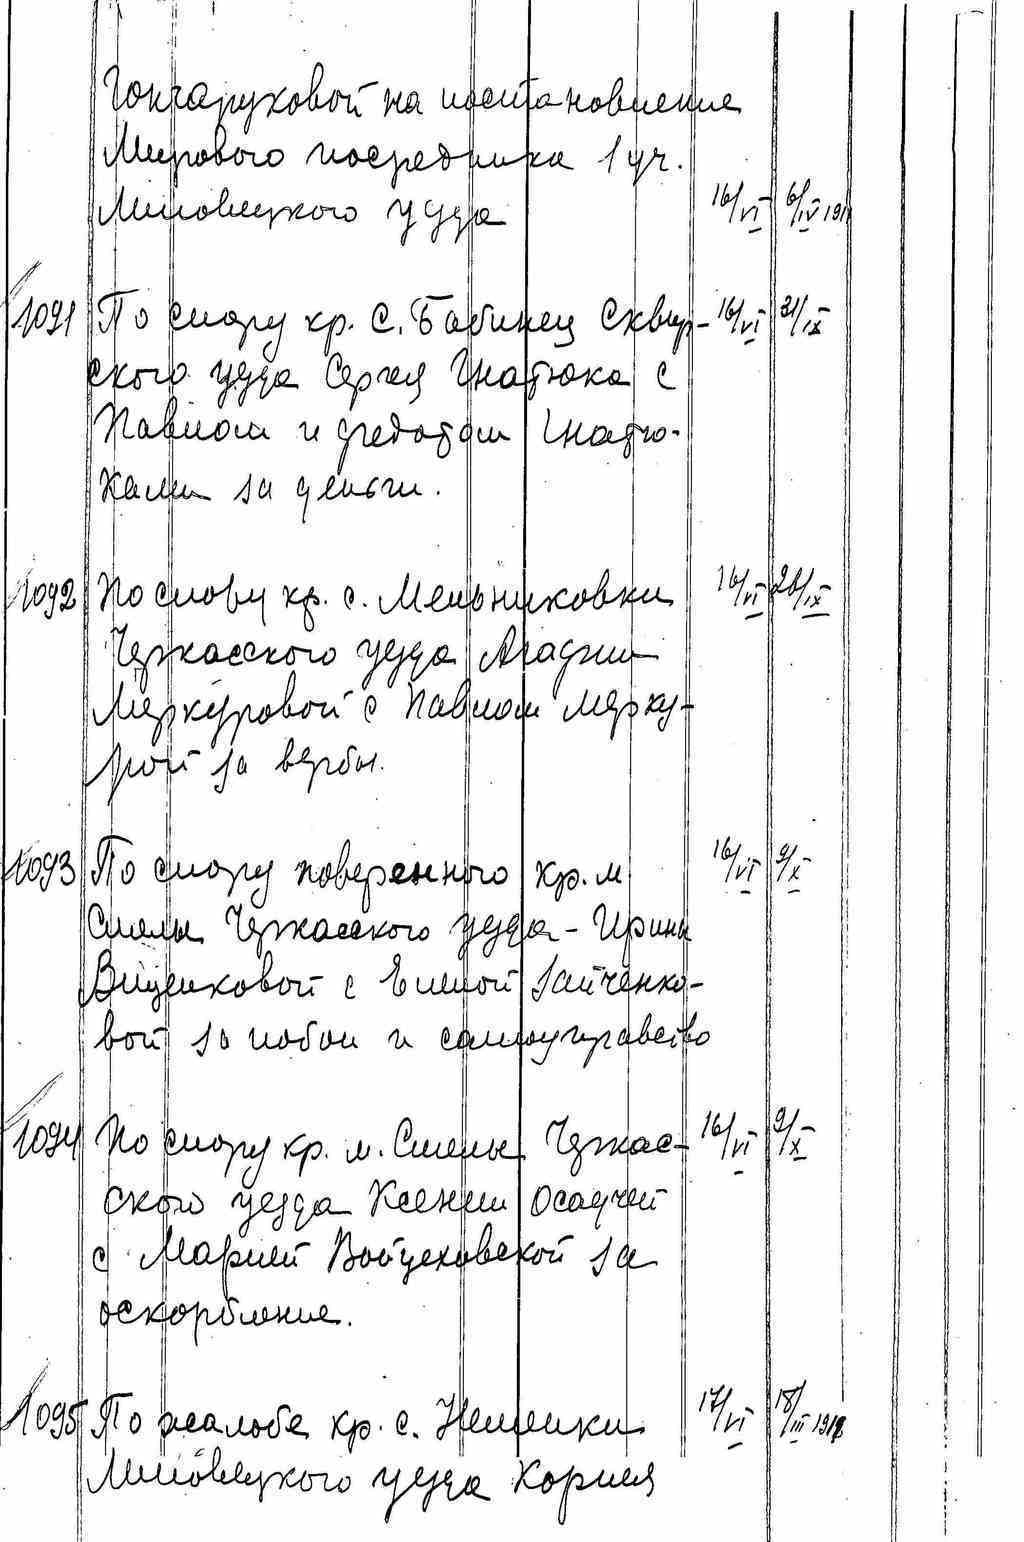 Гончаруковой на постановление
Мирового посредника 1 уч.
Липовецкого уезда 16/VI 6/IV 191
1091 По спору кр. с. Бабинец Сквир- 16/VI 31/IX
ского уезда Сергея Гнатюка с
Павлом и Федотом Гнатю-
ками за деньги.
1092 По спору кр. с. Мельниковки 16/VI 26/IX
Черкасского уезда Агафии
Меркуровой с Павлом Мерку-
рой за вербы.
1093 По спору поверенного кр. м. 16/VI 9/X
Смелы Черкасского уезда - Ирины
Вищенковой с Еленой Зайченко-
вой за побои и самоуправство
1094 По спору кр. м. Смелы Черкас- 16/VI 9/X
ского уезда Ксении Осадчей
с Марией Войцеховской за
оскорбление.
1095 По жалобе кр. с. 17/VI 18/III 1912
Липовецкого уезда Корнея